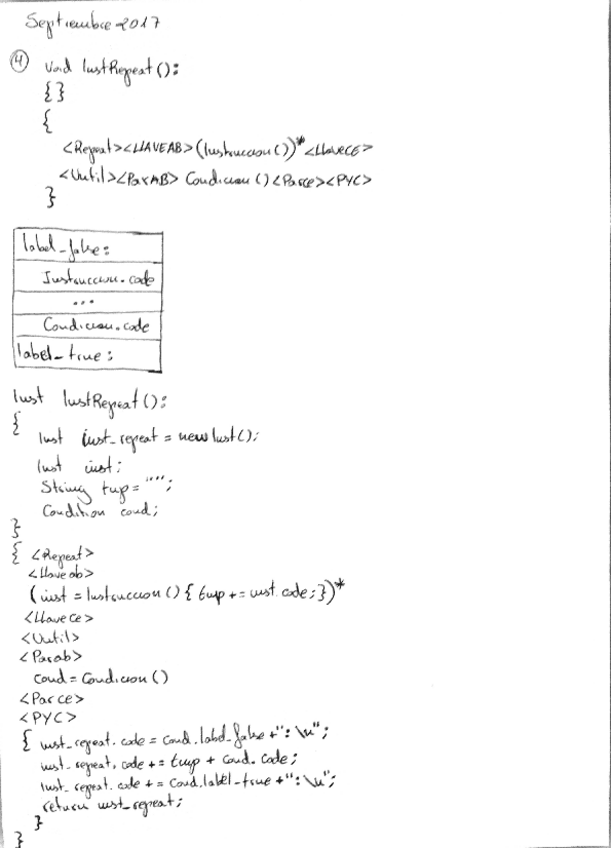 Septiembre 2017
④ void InstRepeat():
{}
{
<Repeat><LLAVEAB>(Instruccion())*<LlaveCE>
<Until><ParAB> Condicion()<Parce><PYC>
}
label_false:
Instruccion.code
...
Condicion.code
label_true:
Inst InstRepeat():
{
Inst inst_repeat = new Inst();
Inst inst;
String tmp = "";
Condition cond;
}
{ <Repeat>
<Llaveab>
(inst = Instruccion() { tmp += inst.code; })*
<Llavece>
<Until>
<Parab>
cond = Condicion()
<Parce>
<PYC>
{ inst_repeat.code = cond.label_false + ": \n";
inst_repeat.code += tmp + cond.code;
inst_repeat.code += cond.label_true + ": \n";
return inst_repeat;
}
}